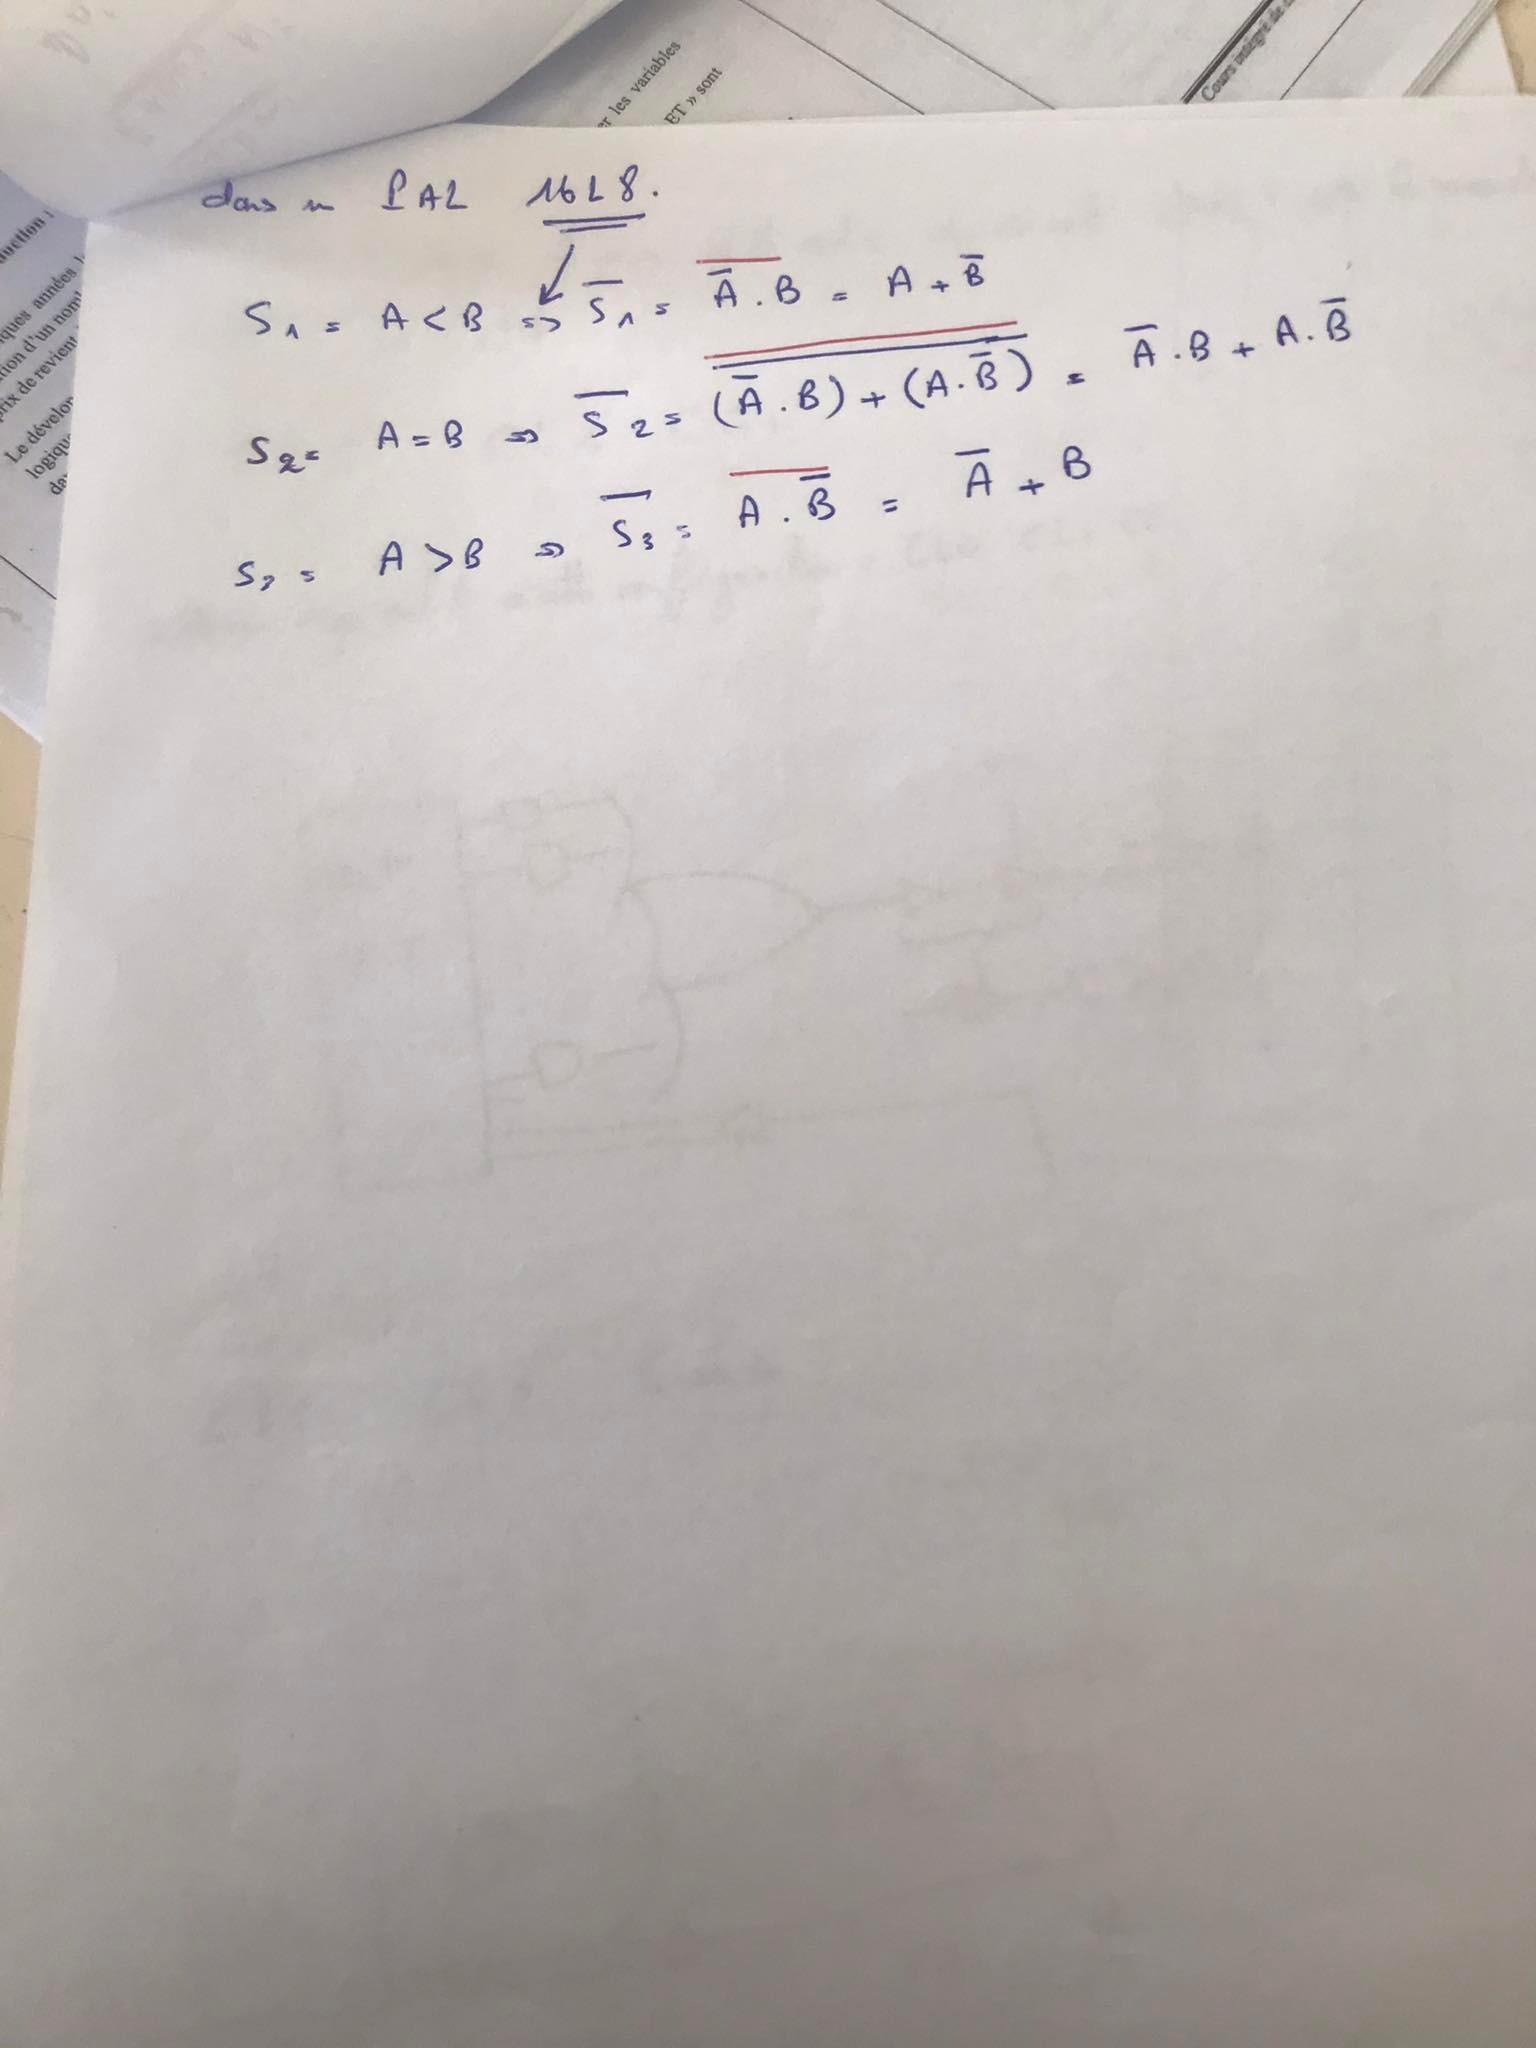 er les variables
ET » sont
Cours intégré de
duction :
ques années
ation d'un nom
prix de revient
Le dévelop
logique
dans un PAL 16L8.
S₁ = A < B ⇒ S̅₁ = \overline{A̅ . B} = A + B̅
S₂ = A = B ⇒ S̅₂ = \overline{\overline{(A̅ . B) + (A . B̅)}} = A̅ . B + A . B̅
S₃ = A > B ⇒ S̅₃ = \overline{A . B̅} = A̅ + B